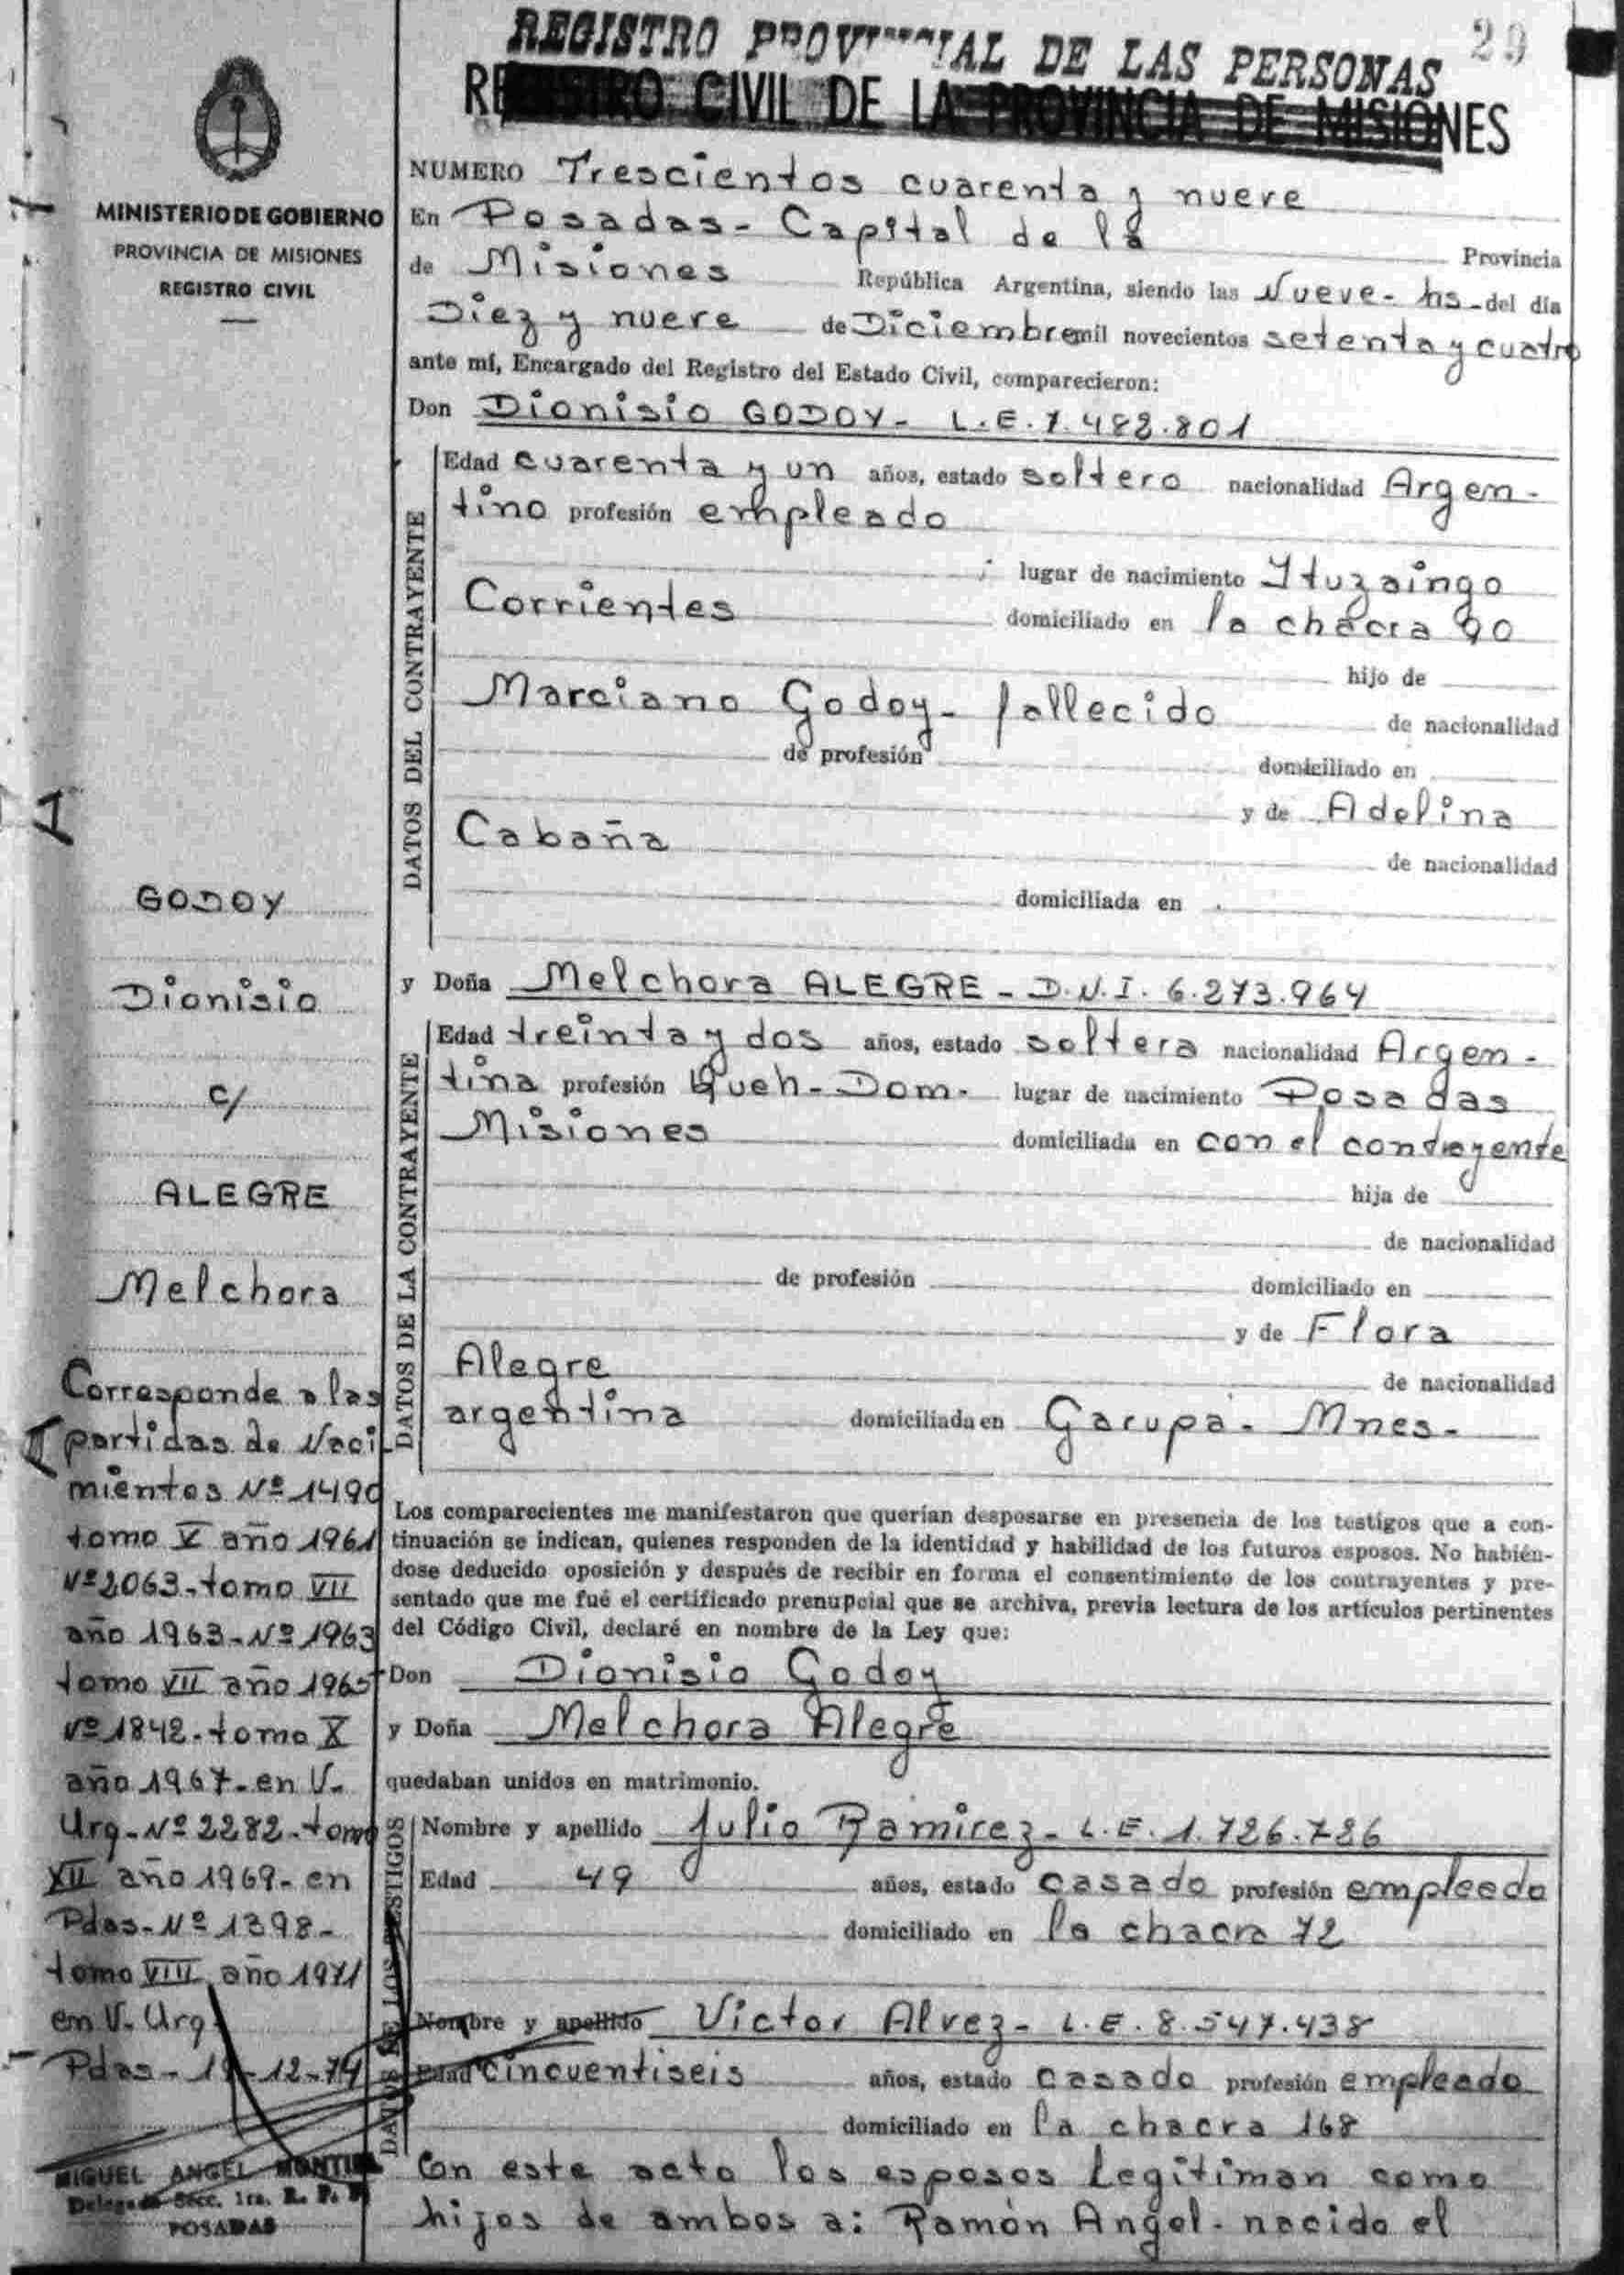 29
REGISTRO PROVINCIAL DE LAS PERSONAS
REGISTRO CIVIL DE LA PROVINCIA DE MISIONES
MINISTERIO DE GOBIERNO
PROVINCIA DE MISIONES
REGISTRO CIVIL
NUMERO Trescientos cuarenta y nueve
En Posadas- Capital de la Provincia
de Misiones República Argentina, siendo las Nueve- hs- del día
Diez y nueve de Diciembre mil novecientos setenta y cuatro
ante mí, Encargado del Registro del Estado Civil, comparecieron:
Don Dionisio GODOY- L.E. 7.482.801
DATOS DEL CONTRAYENTE
Edad cuarenta y un años, estado soltero nacionalidad Argen-
tino profesión empleado
; lugar de nacimiento Ituzaingo
Corrientes domiciliado en la chacra 90
hijo de
Marciano Godoy- fallecido de nacionalidad
de profesión domiciliado en
y de Adelina
Cabaña de nacionalidad
domiciliada en
y Doña Melchora ALEGRE - D.N.I. 6.273.964
DATOS DE LA CONTRAYENTE
Edad treinta y dos años, estado soltera nacionalidad Argen-
tina profesión Queh-Dom. lugar de nacimiento Posadas
Misiones domiciliada en con el contrayente
hija de
de nacionalidad
de profesión domiciliado en
y de Flora
Alegre de nacionalidad
argentina domiciliada en Garupa- Mnes-
Los comparecientes me manifestaron que querían desposarse en presencia de los testigos que a con-
tinuación se indican, quienes responden de la identidad y habilidad de los futuros esposos. No habién-
dose deducido oposición y después de recibir en forma el consentimiento de los contrayentes y pre-
sentado que me fué el certificado prenupcial que se archiva, previa lectura de los artículos pertinentes
del Código Civil, declaré en nombre de la Ley que:
Don Dionisio Godoy
y Doña Melchora Alegre
quedaban unidos en matrimonio.
DATOS DE LOS TESTIGOS
Nombre y apellido Julio Ramirez- L.E. 1.726.786
Edad 49 años, estado casado profesión empleado
domiciliado en la chacra 72
Nombre y apellido Victor Alvez- L.E. 8.547.438
Edad cincuentiseis años, estado casado profesión empleado
domiciliado en la chacra 168
En este acto los esposos Legitiman como
hijos de ambos a: Ramón Angel- nacido el
GODOY
Dionisio
c/
ALEGRE
Melchora
Corresponde a las
partidas de Naci-
mientos Nº 1490
tomo V año 1961
Nº 2063-tomo VII
año 1963-Nº 1963
tomo VII año 1965
Nº 1842-tomo X
año 1967-en V.
Urq-Nº 2282-tomo
XII año 1969-en
Pdas-Nº 1398-
tomo VIII año 1971
en V. Urq.
Pdas- 19-12-74
MIGUEL ANGEL
Delegado Secc. 1ra. R. P. P.
POSADAS